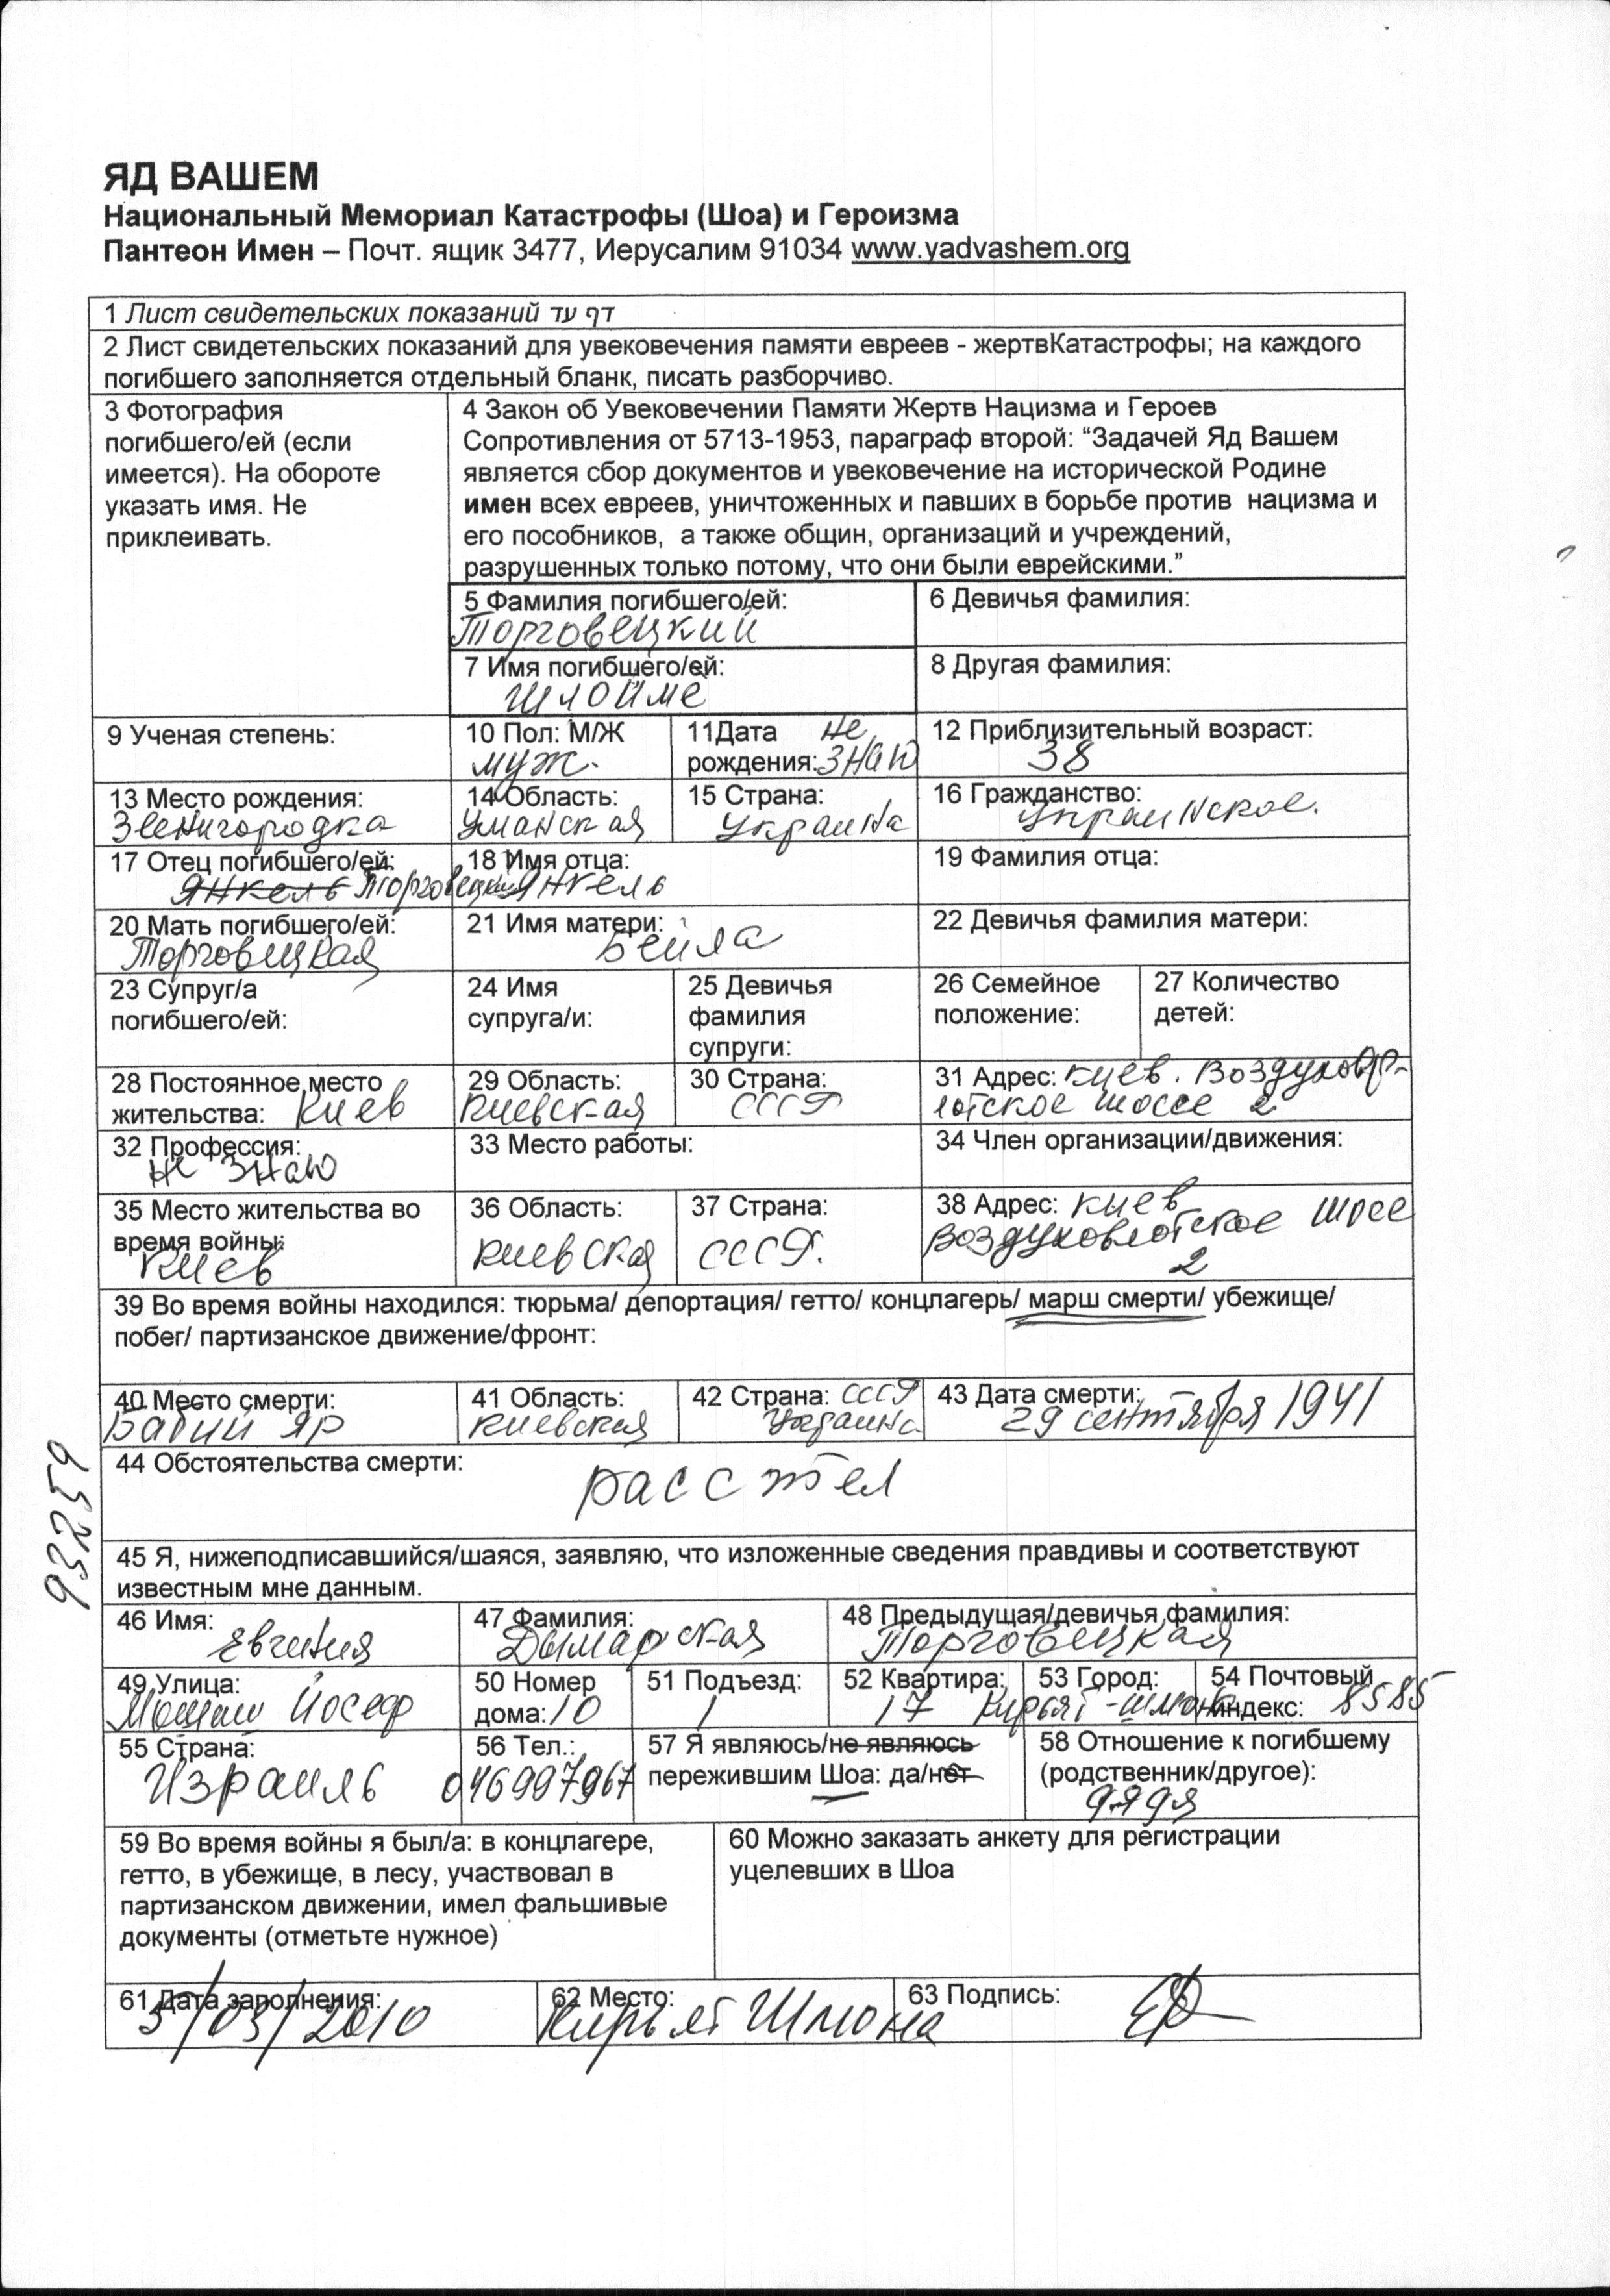 ЯД ВАШЕМ
Национальный Мемориал Катастрофы (Шоа) и Героизма
Пантеон Имен – Почт. ящик 3477, Иерусалим 91034 www.yadvashem.org
1 Лист свидетельских показаний דף עד
2 Лист свидетельских показаний для увековечения памяти евреев - жертвКатастрофы; на каждого
погибшего заполняется отдельный бланк, писать разборчиво.
3 Фотография
погибшего/ей (если
имеется). На обороте
указать имя. Не
приклеивать.
4 Закон об Увековечении Памяти Жертв Нацизма и Героев
Сопротивления от 5713-1953, параграф второй: “Задачей Яд Вашем
является сбор документов и увековечение на исторической Родине
имен всех евреев, уничтоженных и павших в борьбе против нацизма и
его пособников, а также общин, организаций и учреждений,
разрушенных только потому, что они были еврейскими.”
5 Фамилия погибшего/ей:
Торговецкий
6 Девичья фамилия:
7 Имя погибшего/ей:
Шлойме
8 Другая фамилия:
9 Ученая степень:
10 Пол: М/Ж
муж.
11Дата не
рождения: знаю
12 Приблизительный возраст:
38
13 Место рождения:
Звенигородка
14 Область:
Уманская
15 Страна:
Украина
16 Гражданство:
Украинское.
17 Отец погибшего/ей:
Янкель Торговецкий
18 Имя отца:
Янкель
19 Фамилия отца:
20 Мать погибшего/ей:
Торговецкая
21 Имя матери:
Бейла
22 Девичья фамилия матери:
23 Супруг/а
погибшего/ей:
24 Имя
супруга/и:
25 Девичья
фамилия
супруги:
26 Семейное
положение:
27 Количество
детей:
28 Постоянное место
жительства: Киев
29 Область:
Киевская
30 Страна:
СССР
31 Адрес: Киев.
шоссе 2
32 Профессия:
не знаю
33 Место работы:
34 Член организации/движения:
35 Место жительства во
время войны:
Киев
36 Область:
Киевская
37 Страна:
СССР.
38 Адрес: Киев
Воздухофлотское шосе
2
39 Во время войны находился: тюрьма/ депортация/ гетто/ концлагерь/ марш смерти/ убежище/
побег/ партизанское движение/фронт:
40 Место смерти:
Бабий яр
41 Область:
Киевская
42 Страна: СССР
Украина
43 Дата смерти:
29 сентября 1941
44 Обстоятельства смерти:
расстел
93259
45 Я, нижеподписавшийся/шаяся, заявляю, что изложенные сведения правдивы и соответствуют
известным мне данным.
46 Имя:
Евгения
47 Фамилия:
Дымарская
48 Предыдущая/девичья фамилия:
Торговецкая
49 Улица:
Йосеф
50 Номер
дома: 10
51 Подъезд:
1
52 Квартира:
17
53 Город:
Кирьят-шмона
54 Почтовый
индекс: 8585
55 Страна:
Израиль
56 Тел.:
046997967
57 Я являюсь/не являюсь
пережившим Шоа: да/нет
58 Отношение к погибшему
(родственник/другое):
дядя
59 Во время войны я был/а: в концлагере,
гетто, в убежище, в лесу, участвовал в
партизанском движении, имел фальшивые
документы (отметьте нужное)
60 Можно заказать анкету для регистрации
уцелевших в Шоа
61 Дата заполнения:
5/03/2010
62 Место:
Кирьят Шмона
63 Подпись: